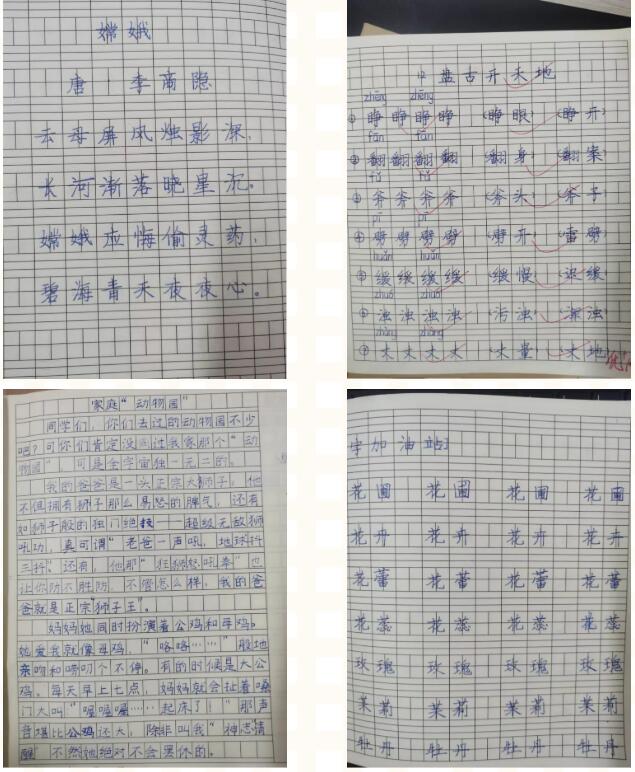 嫦娥
唐 李商隐
云母屏风烛影深,
长河渐落晓星沉。
嫦娥应悔偷灵药,
碧海青天夜夜心。
12 盘古开天地
zhēng zhēng
① 睁 睁 睁 睁 (睁眼) (睁开)
fān fān
② 翻 翻 翻 翻 (翻身) (翻案)
fǔ fǔ
③ 斧 斧 斧 斧 (斧头) (斧子)
pī pī
④ 劈 劈 劈 劈 (劈开) (雷劈)
huǎn huǎn
⑤ 缓 缓 缓 缓 (缓慢) (迟缓)
zhuó zhuó
⑥ 浊 浊 浊 浊 (污浊) (浑浊)
zhàng zhàng
⑦ 丈 丈 丈 丈 (丈量) (丈地)
优
家庭“动物园”
同学们,你们去过的动物园不少
吧?可你们肯定没问过我家那个“动
物园”,可是全宇宙独一无二的。
我的爸爸是一头正宗大狮子,他
不但拥有狮子那么易怒的脾气,还有
如狮子般的独门绝技——超级无敌狮
吼功,真可谓“老爸一声吼,地球抖
三抖”。还有,他那“狂狮怒吼拳”也
让你防不胜防,不管怎么样,我的爸
爸就是正宗“狮子王”。
妈妈她同时扮演着公鸡和母鸡。
她爱我就像母鸡,“咯咯……”般地
亲吻和唠叨个不停。有的时候是大公
鸡。每天早上七点,妈妈就会扯着嗓
门大叫“喔喔喔……起床了!”那声
音堪比公鸡还大,除非叫我“神志清
醒”不然她绝对不会罢休的。
字加油站
花圃 花圃 花圃 花圃
花卉 花卉 花卉 花卉
花蕾 花蕾 花蕾 花蕾
花蕊 花蕊 花蕊 花蕊
玫瑰 玫瑰 玫瑰 玫瑰
茉莉 茉莉 茉莉 茉莉
牡丹 牡丹 牡丹 牡丹